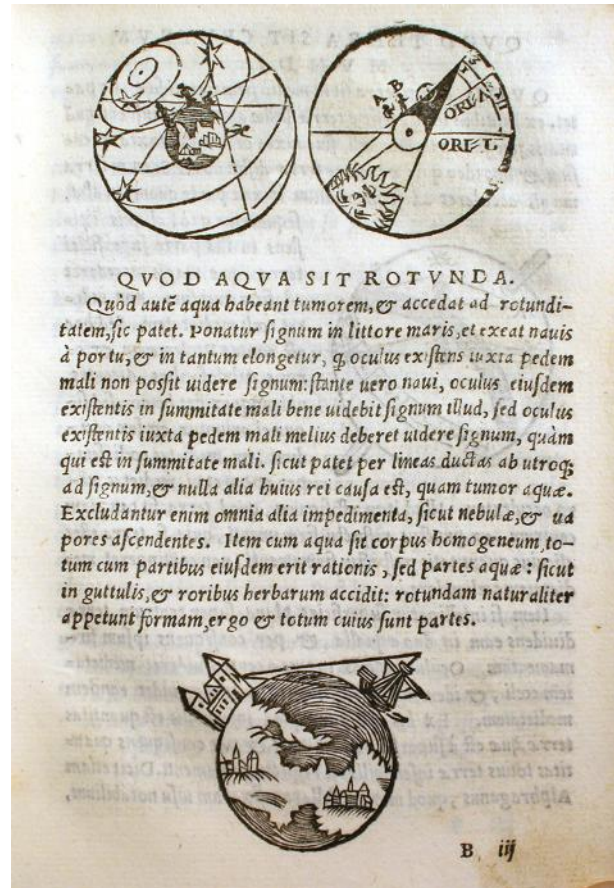 A B
ORIE
QVOD AQVA SIT ROTVNDA.
Quòd autē aqua habeant tumorem, & accedat ad rotundi-
tatem, sic patet. Ponatur signum in littore maris, et exeat nauis
à portu, & in tantum elongetur, q̨ oculus existens iuxta pedem
mali non possit uidere signum: stante uero naui, oculus eiusdem
existentis in summitate mali bene uidebit signum illud, sed oculus
existentis iuxta pedem mali melius deberet uidere signum, quàm
qui est in summitate mali. sicut patet per lineas ductas ab utroq;
ad signum, & nulla alia huius rei causa est, quam tumor aquæ.
Excludantur enim omnia alia impedimenta, sicut nebulæ, & ua
pores ascendentes. Item cum aqua sit corpus homogeneum, to-
tum cum partibus eiusdem erit rationis, sed partes aquæ: sicut
in guttulis, & roribus herbarum accidit: rotundam naturaliter
appetunt formam, ergo & totum cuius sunt partes.
B iij